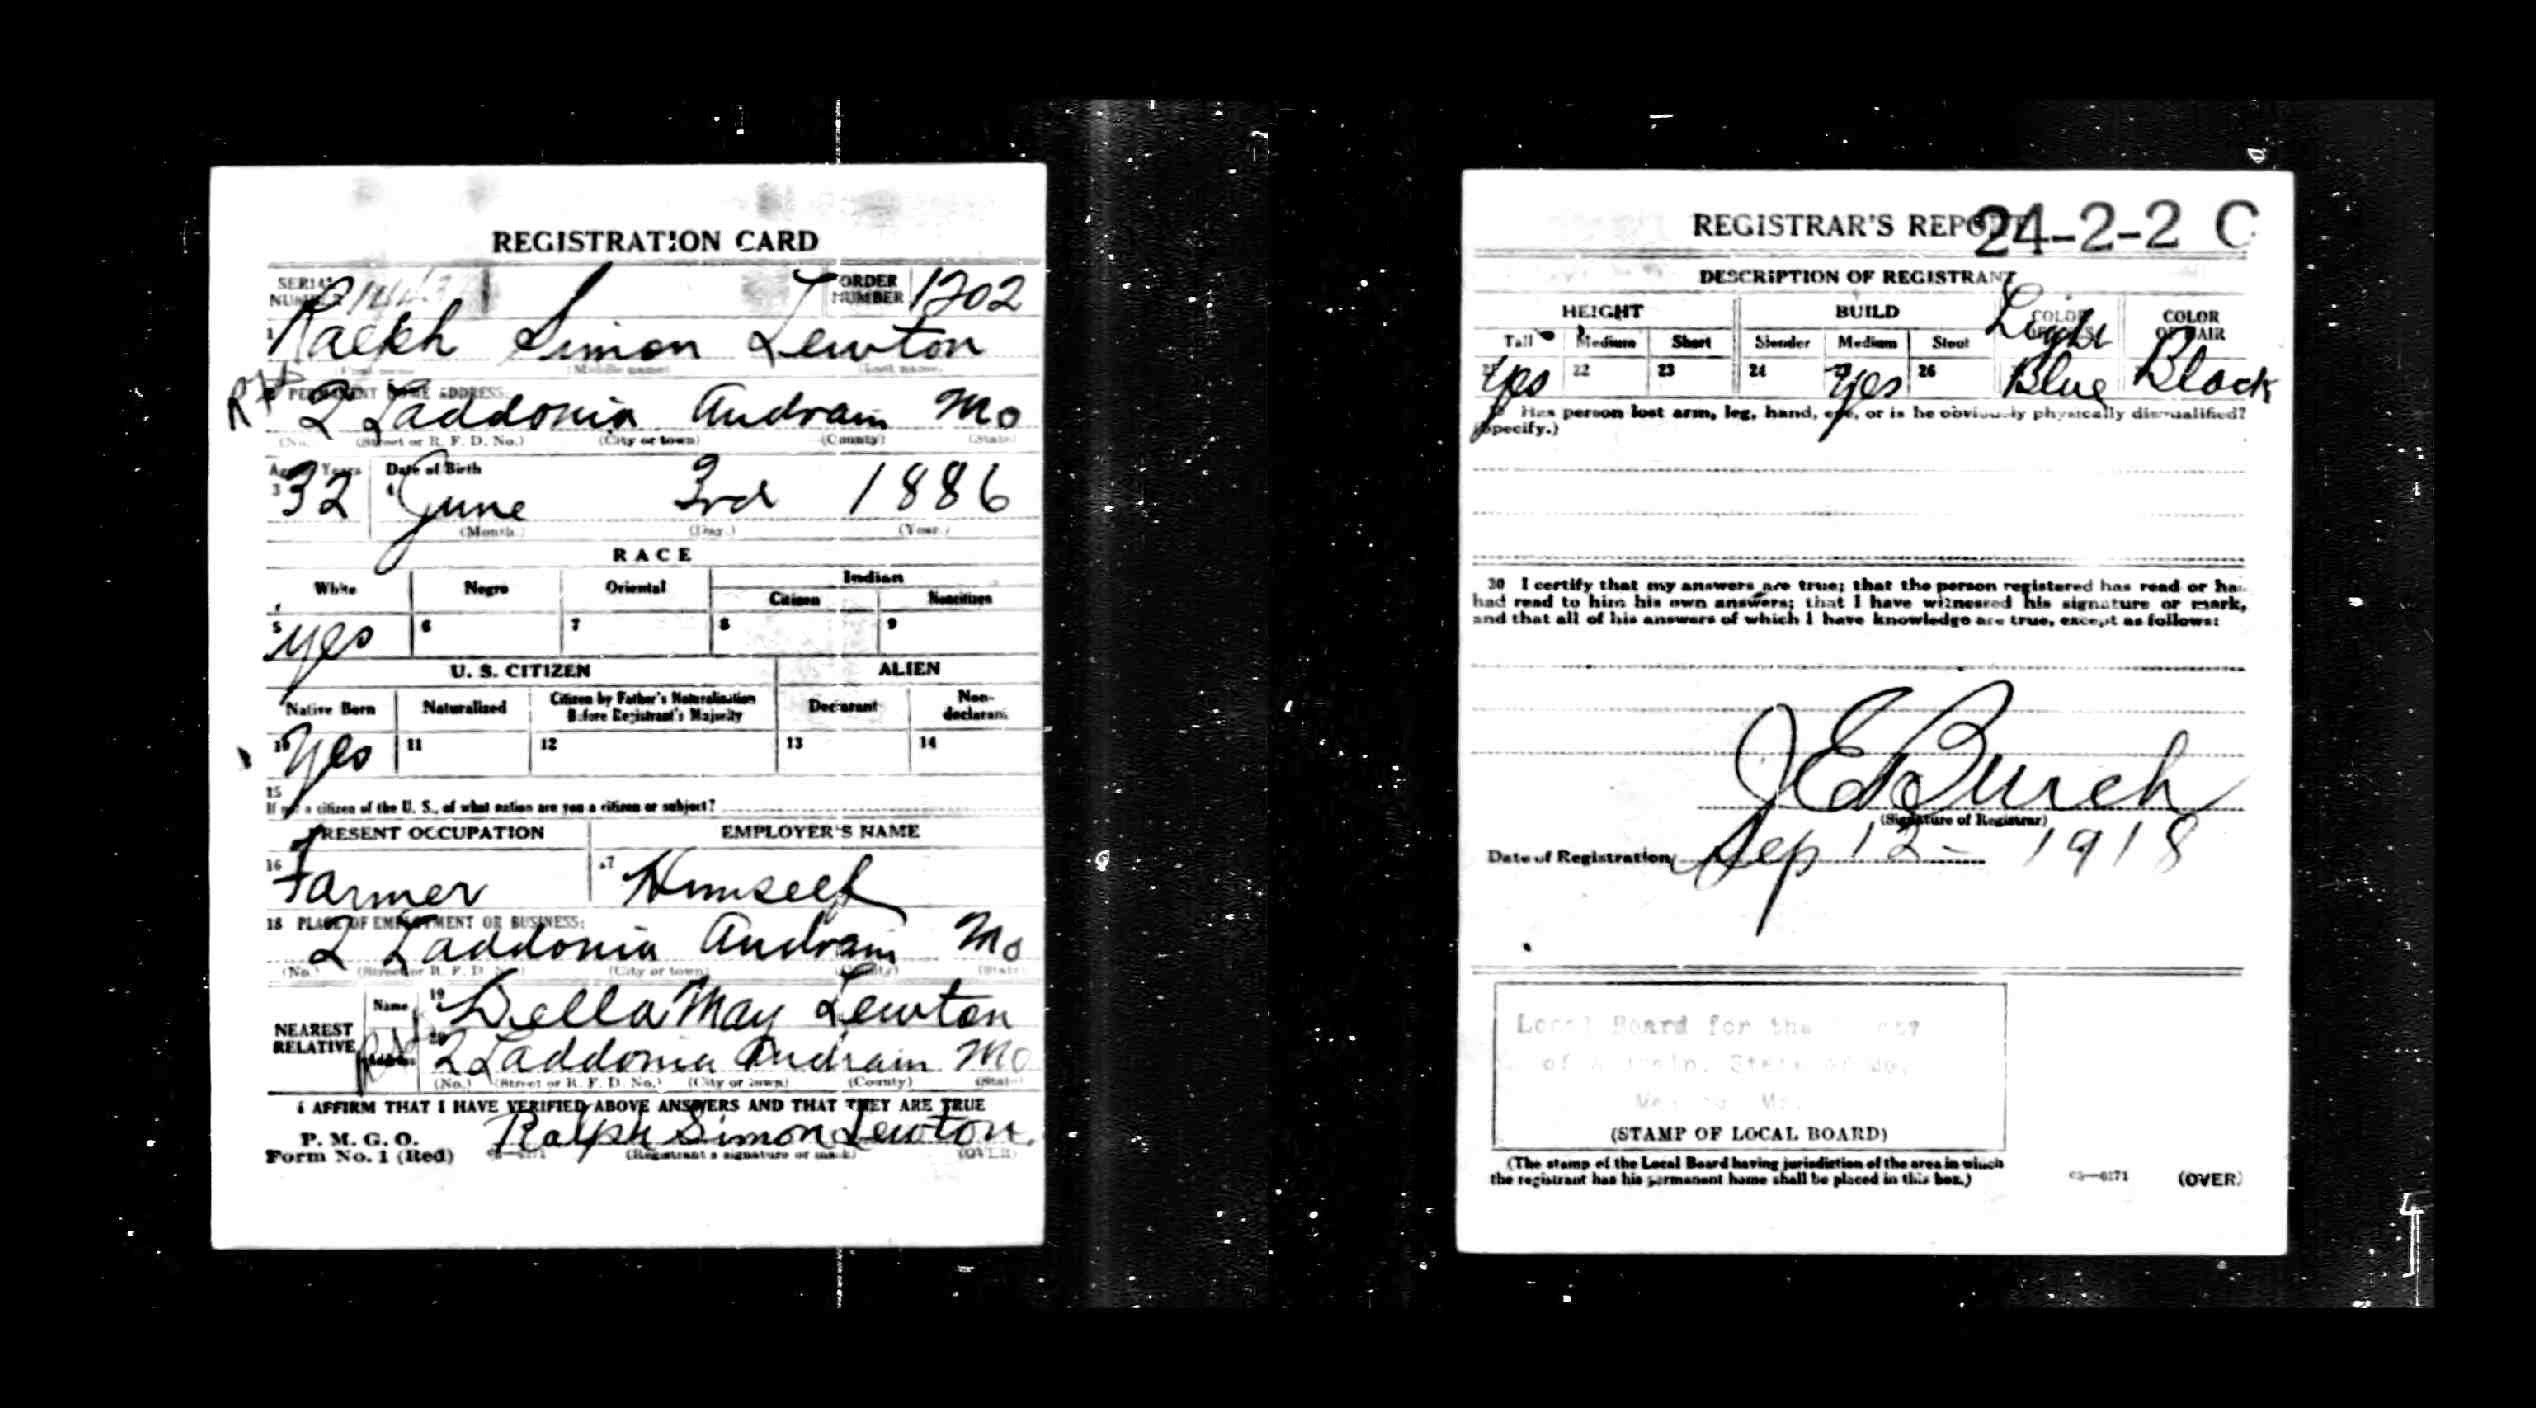 REGISTRATION CARD
SERIAL NUMBER ORDER NUMBER 1202
1 Ralph Simon Lewton
(First name) (Middle name) (Last name)
Rt 2 PERMANENT HOME ADDRESS:
2 Laddonia Audrain Mo
(No.) (Street or R. F. D. No.) (City or town) (County) (State)
Age in Years Date of Birth
3 32 4 June 3rd 1886
(Month.) (Day.) (Year.)
RACE
White Negro Oriental Indian
Citizen Noncitizen
5 yes 6 7 8 9
U. S. CITIZEN ALIEN
Native Born Naturalized Citizen by Father's Naturalization Before Registrant's Majority Declarant Non-declarant
10 yes 11 12 13 14
15
If not a citizen of the U. S., of what nation are you a citizen or subject?
PRESENT OCCUPATION EMPLOYER'S NAME
16 Farmer 17 Himself
18 PLACE OF EMPLOYMENT OR BUSINESS:
2 Laddonia Audrain Mo
(No.) (Street or R. F. D. No.) (City or town) (County) (State)
NEAREST RELATIVE Name 19 Della May Lewton
Address 20 Rt 2 Laddonia Audrain Mo
(No.) (Street or R. F. D. No.) (City or town) (County) (State)
I AFFIRM THAT I HAVE VERIFIED ABOVE ANSWERS AND THAT THEY ARE TRUE
P. M. G. O.
Form No. 1 (Red) Ralph Simon Lewton
(Registrant's signature or mark) (OVER)
REGISTRAR'S REPORT 24-2-2 C
DESCRIPTION OF REGISTRANT
HEIGHT BUILD COLOR OF EYES COLOR OF HAIR
Tall Medium Short Slender Medium Stout Light
21 yes 22 23 24 25 yes 26 Blue Black
29 Has person lost arm, leg, hand, eye, or is he obviously physically disqualified?
(Specify.)
30 I certify that my answers are true; that the person registered has read or has
had read to him his own answers; that I have witnessed his signature or mark,
and that all of his answers of which I have knowledge are true, except as follows:
J E Burch
(Signature of Registrar)
Date of Registration Sep 12 - 1918
Local Board for the County
of Audrain, State of Mo.
Mo.
(STAMP OF LOCAL BOARD)
(The stamp of the Local Board having jurisdiction of the area in which
the registrant has his permanent home shall be placed in this box.)
03—6171 (OVER)